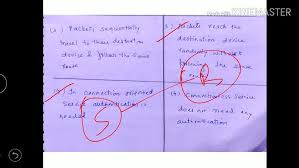 Made with
KINEMASTER
(3) Packets sequentially
travel to
device & follow the same
route
Packets reach the
destination device
randomly without
following the same
route
In connection oriented
service authentication is
needed
(4) Connectionless Service
does not need any
authentication